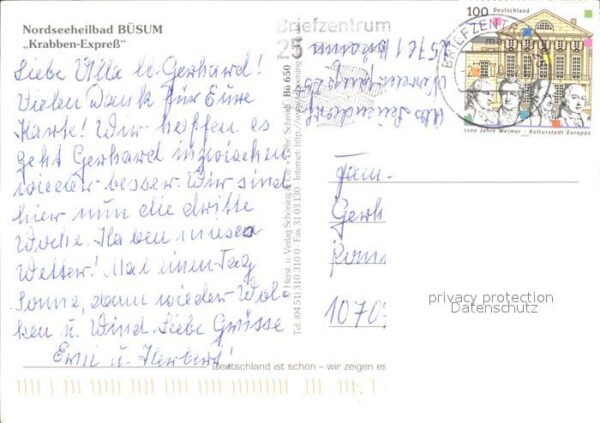 Nordseeheilbad BÜSUM
„Krabben-Expreß“
Liebe Ulla u. Gerhard!
Vielen Dank für Eure
Karte! Wir hoffen es
geht Gerhard inzwischen
wieder besser. Wir sind
hier nun die dritte
Woche. Haben
Wetter! Mal einen Tag
Sonne, dann wieder Wol-
ken u. Wind. Liebe Grüsse
Erni u. Herbert!
Briefzentrum
25
25761 Büsum
Herst. u. Verlag Schöning & Co + Gebr. Schmidt Bü 650
Tel. (04 51) 310 310 0 - Fax 31 03 130 - Internet: http://www.
100 Deutschland
BRIEFZENT
1100 Jahre Weimar - Kulturstadt Europas
Fam.
Gerh
1070
privacy protection
Datenschutz
Deutschland ist schön – wir zeigen es